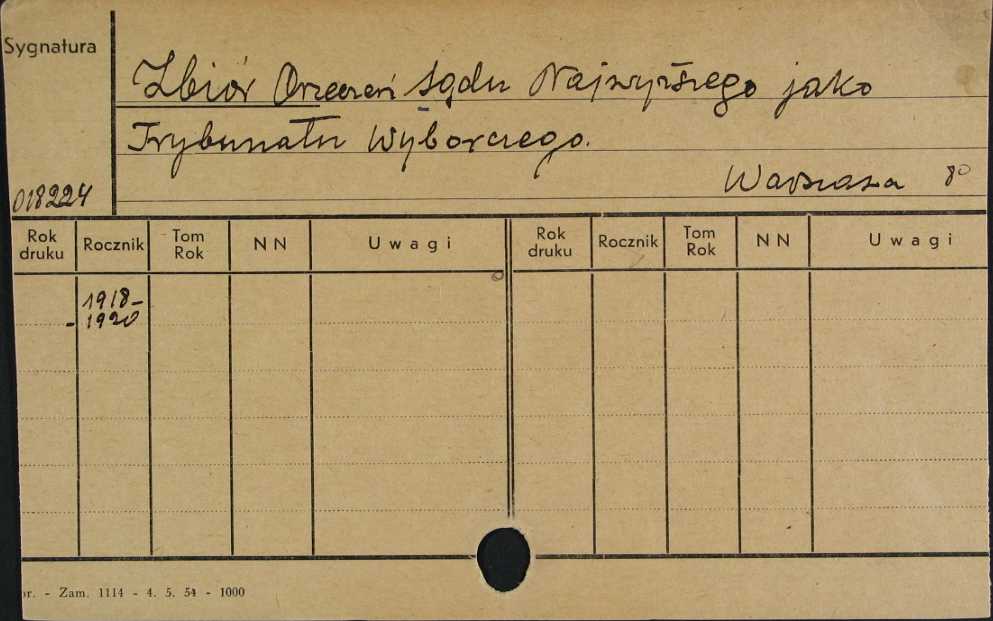 Sygnatura
Zbiór Orzeczeń Sądu Najwyższego jako
Trybunału Wyborczego.
Warszawa 8⁰
018224
Rok druku Rocznik Tom Rok NN Uwagi Rok druku Rocznik Tom Rok NN Uwagi
1918-
-1920
r. - Zam. 1114 - 4. 5. 54 - 1000